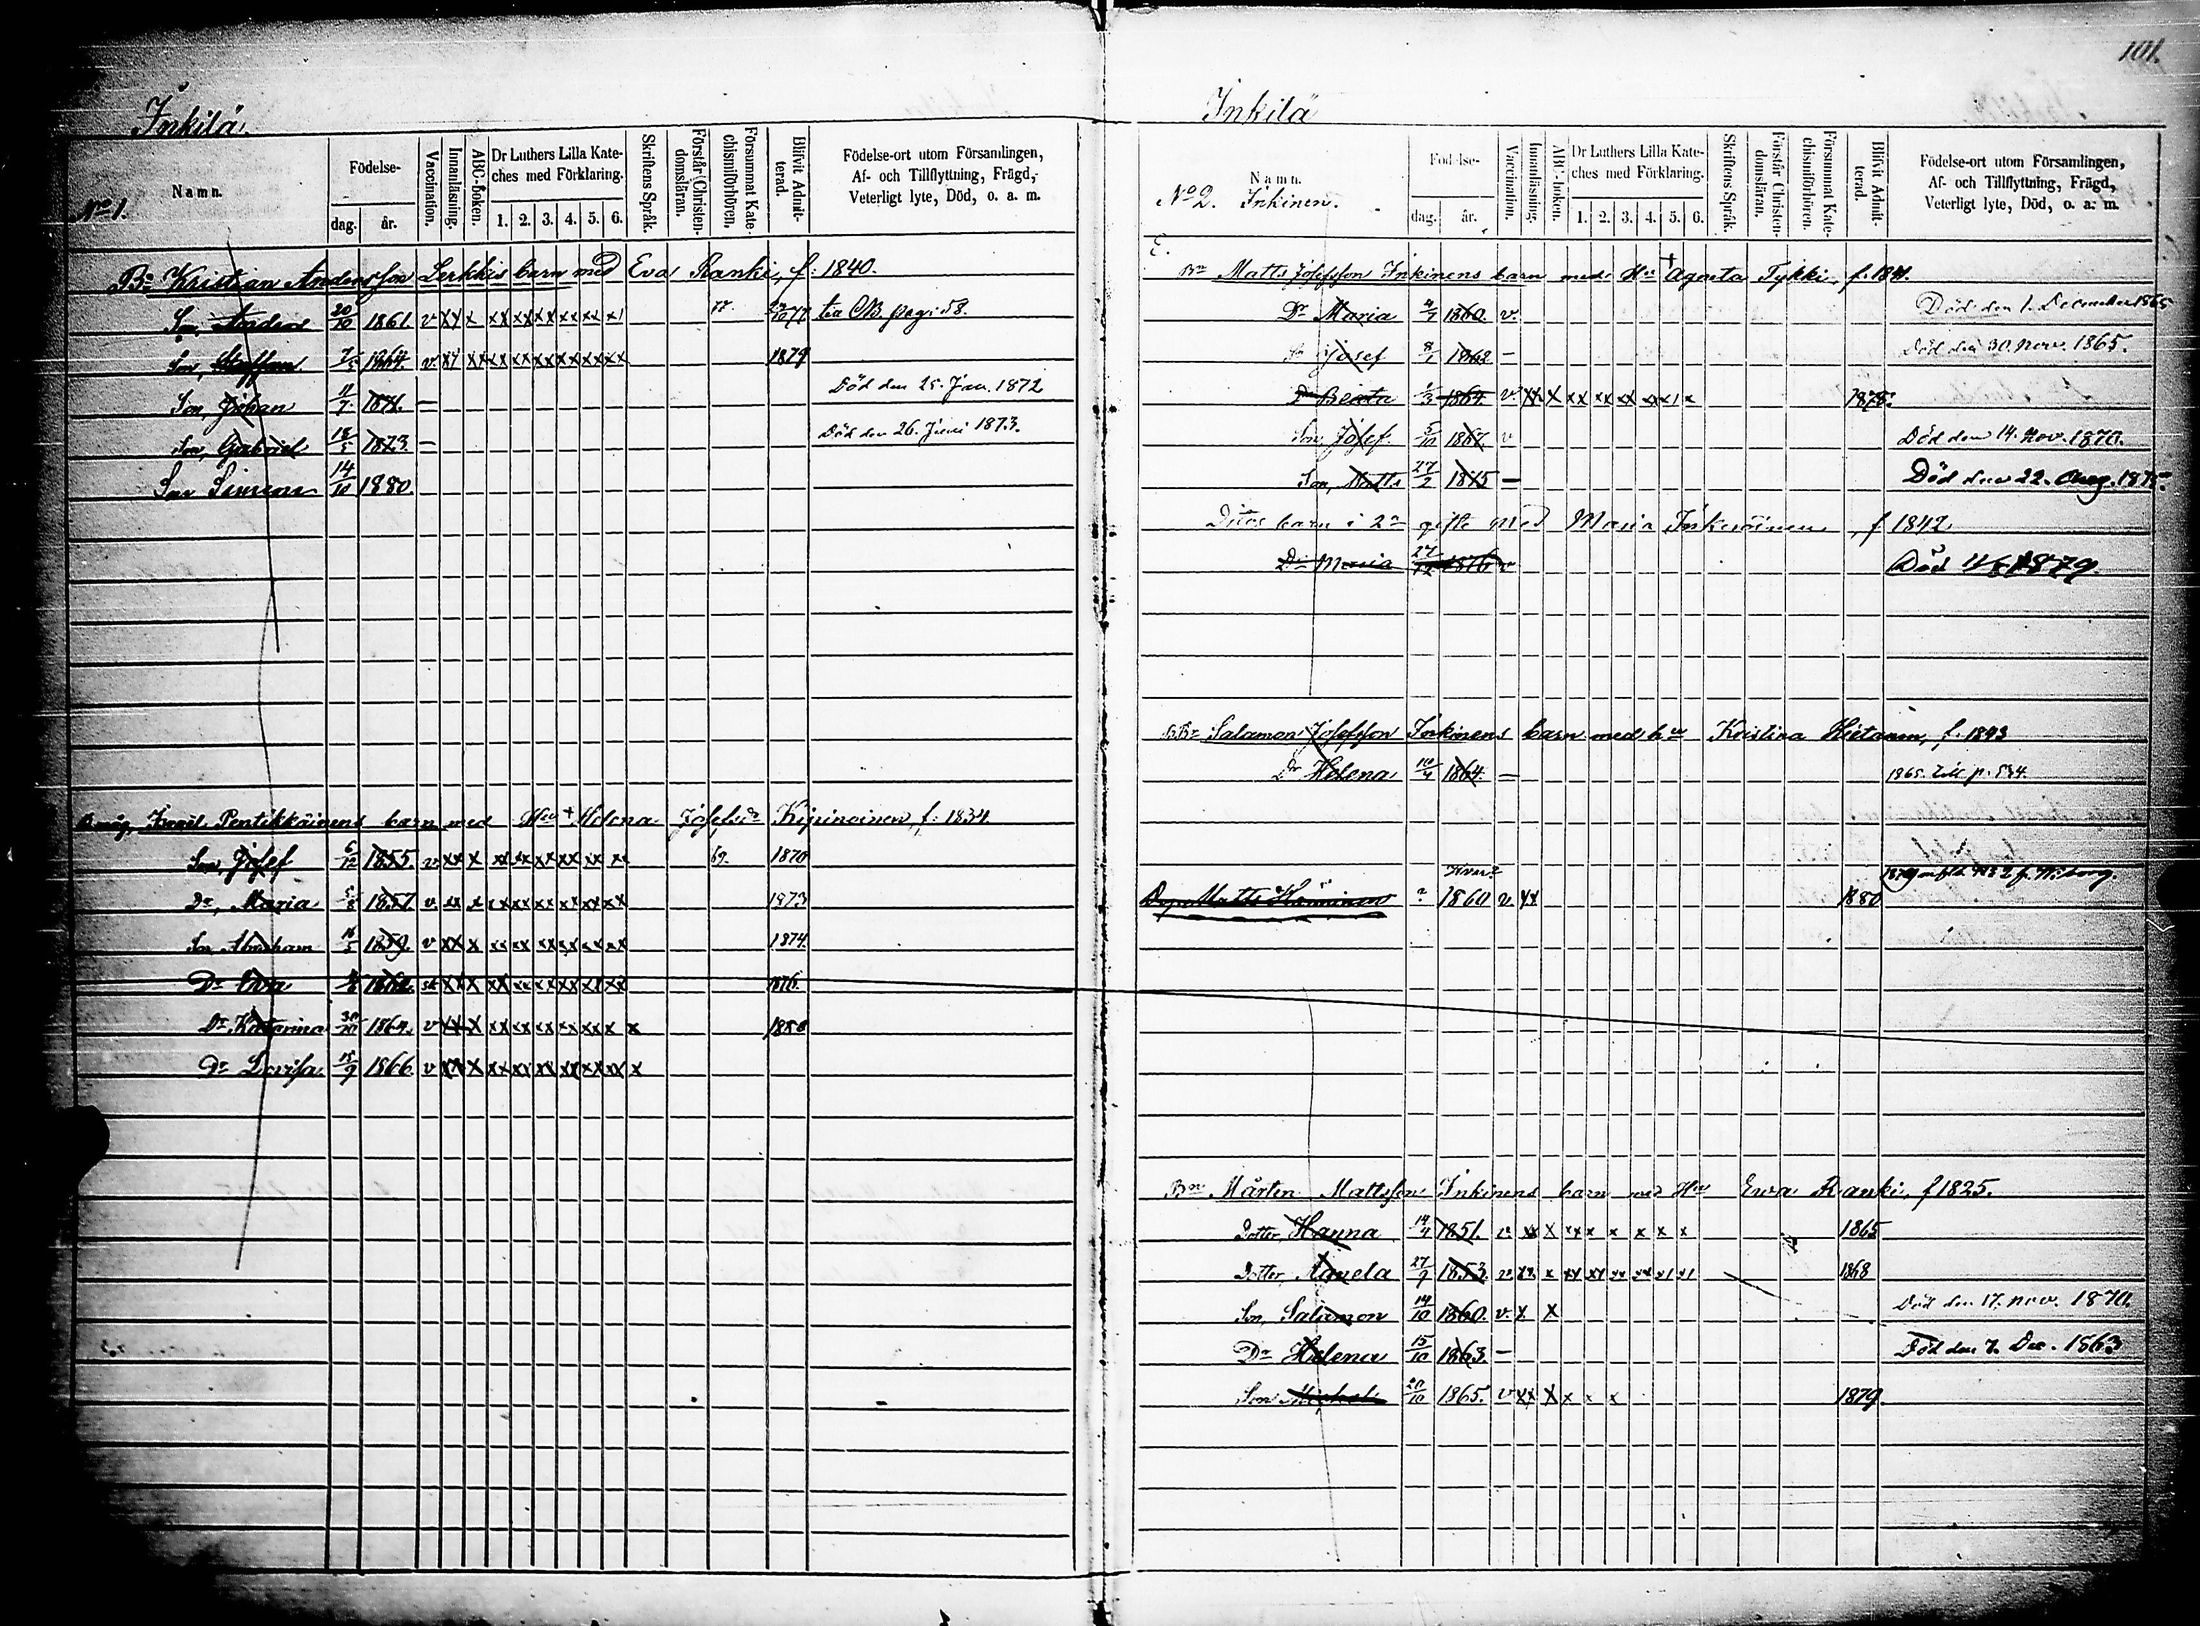 101.
Inkilä.
No 1.
Namn.
Födelse-
dag. år.
Vaccination.
Innanläsning.
ABC-boken.
Dr Luthers Lilla Kate-
ches med Förklaring.
1. 2. 3. 4. 5. 6.
Skriftens Språk.
Förstår Christen-
domsläran.
Försummat Kate-
chismiförhören.
Blifvit Admit-
terad.
Födelse-ort utom Församlingen,
Af- och Tillflyttning, Frägd,
Veterligt lyte, Död, o. a. m.
Bn Kristian Andersson Lerkkis barn med Eva Ranki, f. 1840.
Son, Anders 20/10 1861. v xx x xx xx xx xx xx x1 77
Son, Staffan 7/5 1864. v. xx xx xx xx xx xx xx 1879
Son, Johan 11/7 1871. — Död den 25. Jan. 1872
Son, Gabriel 18/5 1873. — Död den 26. Juni 1873.
Son Simon 14/10 1880.
Israel Pentikkäinens barn med Hu + Helena Josefsdr f. 1834.
Son, Josef 6/12 1855. v xx x xx xx xx xx xx xx 69. 1870
Dr, Maria 5/8 1857. v. xx x xx xx xx xx xx xx 1873
Son, Abraham 16/5 1859. v xx x xx xx xx xx xx xx 1874
Dr 1862. xx x xx xx xx xx xx xx 1876.
Dr Katarina 30/10 1864. v xx x xx xx xx xx xx x x 1880
Dr Lovisa 15/9 1866 v xx x xx xx xx xx xx xx x
Inkilä
No 2. Inkinen.
Namn.
Födelse-
dag. år.
Vaccination.
Innanläsning.
ABC-boken.
Dr Luthers Lilla Kate-
ches med Förklaring.
1. 2. 3. 4. 5. 6.
Skriftens Språk.
Förstår Christen-
domsläran.
Försummat Kate-
chismiförhören.
Blifvit Admit-
terad.
Födelse-ort utom Församlingen,
Af- och Tillflyttning, Frägd,
Veterligt lyte, Död, o. a. m.
Bn Matts Josefsson Inkinens barn med Hu + Agneta Tykki, f. 1841.
Dr Maria 4/7 1860. v. Död den 1. December 1865
Sn Josef 8/1 1862 — Död den 30. Nov. 1865.
Dr Beata 1/3 1864. v. xx x xx xx xx xx 1 x 1878.
Son, Josef. 5/10 1867. v Död den 14. Nov. 1870.
Son, Matts 27/2 1875 — Död den 22. Aug. 1875.
barn i 2a gifte med Maria f 1842
Dr Maria 27/12 1876 v Död 1879.
Salamon Josefsson Inkinens barn med hu Kristina Hietanen, f. 1843
Dr Helena 10/4 1864. — 1865. till p. 534.
Matts ? 1860 v xx 1880
Bn Mårten Mattsson Inkinens barn med Hu Ewa Ranki, f 1825.
Dotter, Hanna 14/4 1851. v xx x xx x x x x x 1865
Dotter, 27/9 1853. v. xx. x xx xx xx xx x1 x1 1868
Son, Salamon 14/10 1860. v. x x Död den 17. Nov. 1870.
Dr Helena 15/10 1863. — Död den 7. Dec. 1863
Son 20/10 1865. v xx x x x x 1879.